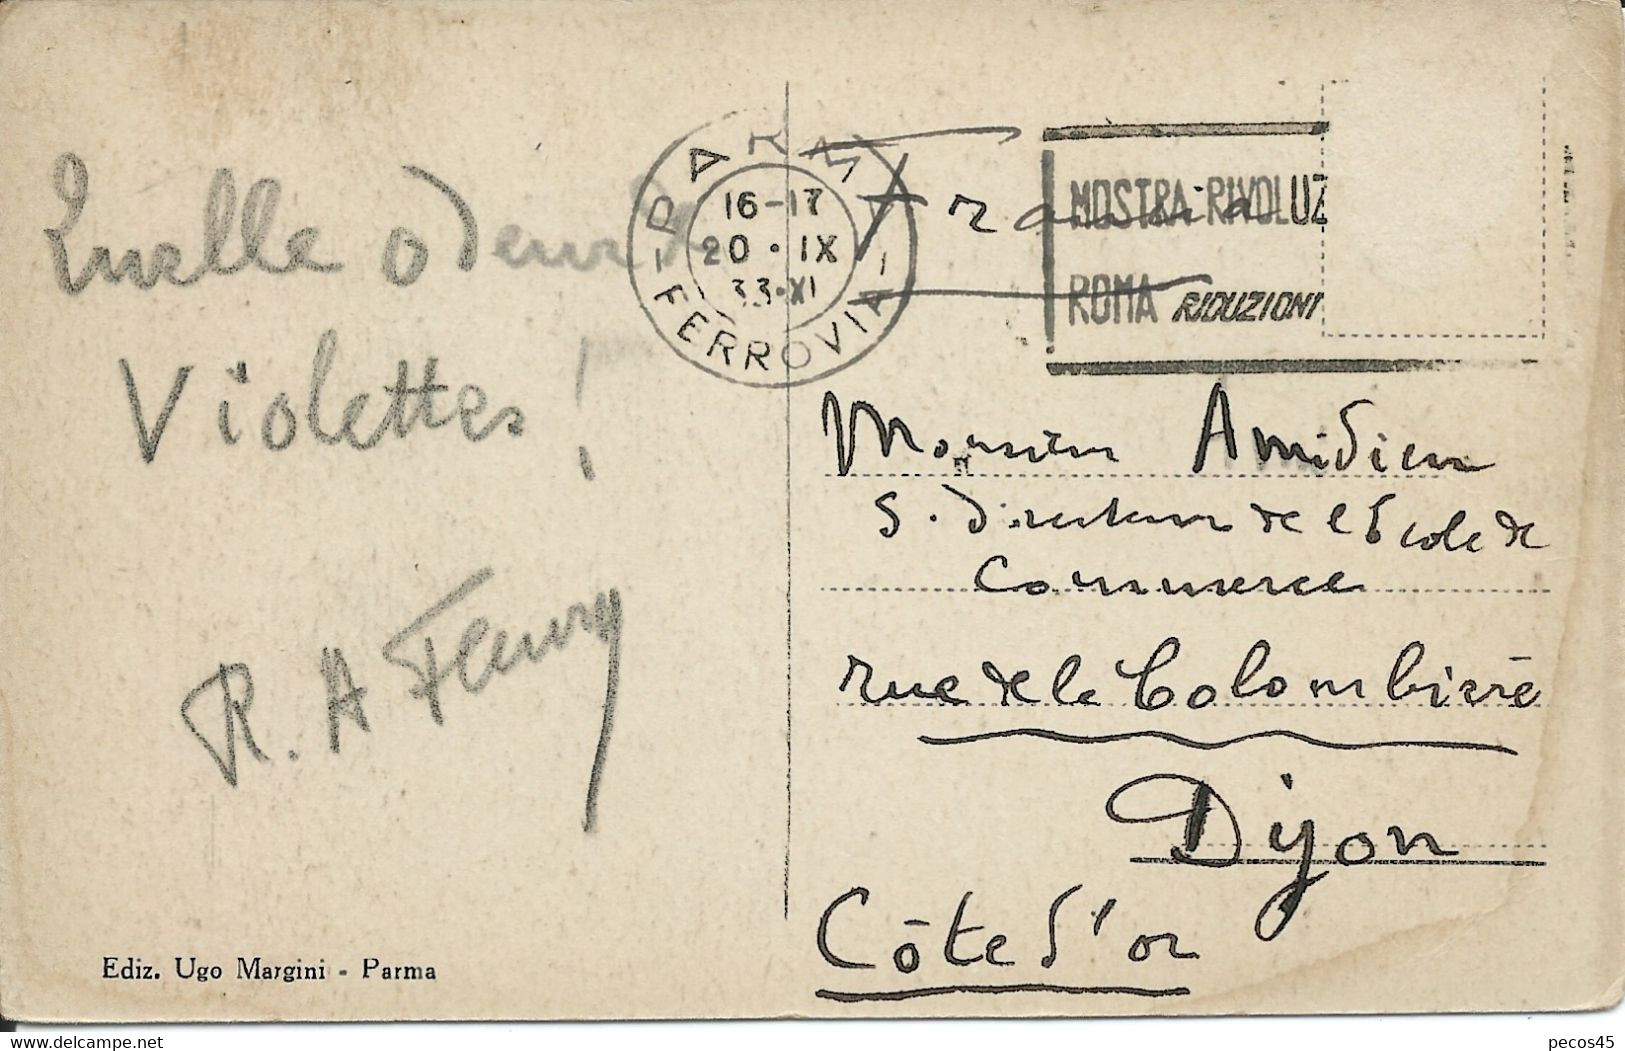 Quelle odeur de
Violettes !
R. A Fleury
Ediz. Ugo Margini - Parma
PARMA
16-17
20·IX
33·XI
-FERROVIA-
MOSTRA-RIVOLUZ
ROMA RIDUZIONI
France
Monsieur Amidieu
S. Directeur de l'Ecole de
Commerce
rue de la Colombière
Dijon
Côte d'or
pecos45